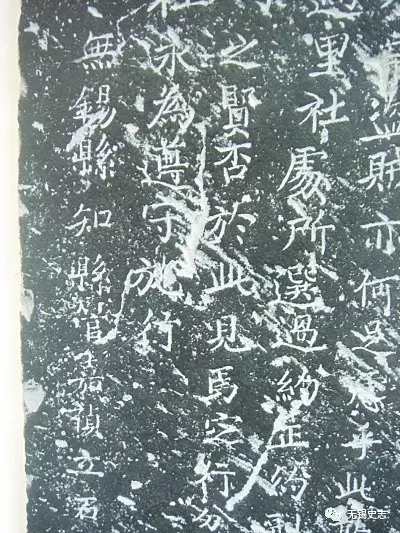 盜賊亦何足乎此
里社處所選過約正約副
之賢否於此見焉定行
社永為遵守施行
無錫縣知縣管嘉禎立石
无锡史志